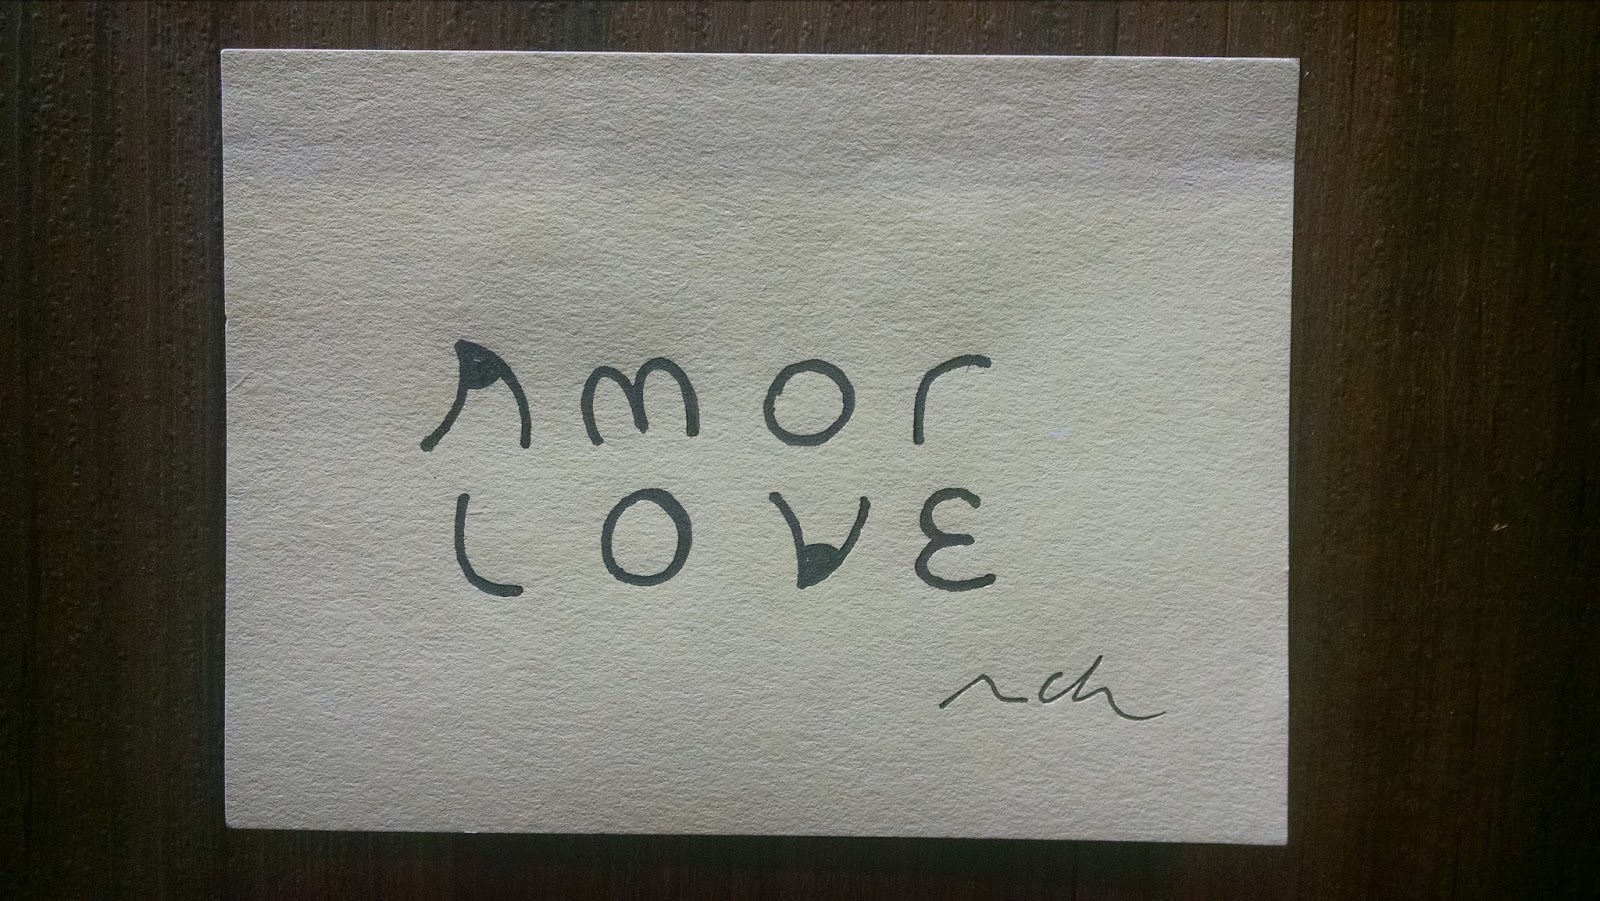 AMOR
LOVE
rch